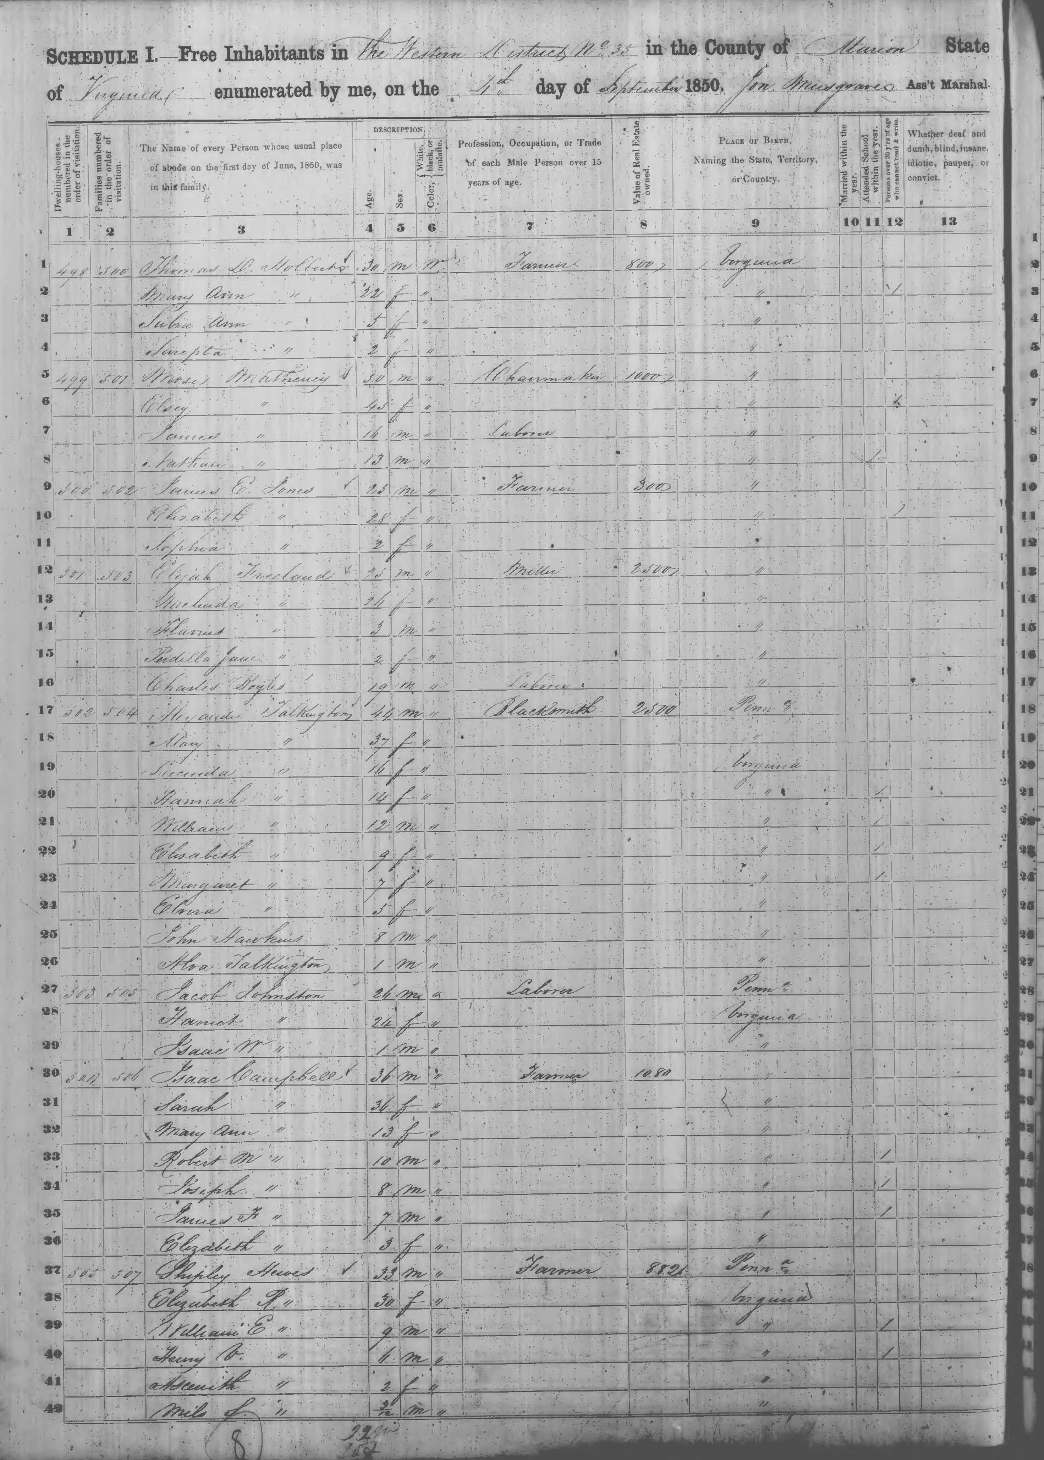 SCHEDULE I.—Free Inhabitants in The Western District No 35 in the County of Marion State
of Virginia enumerated by me, on the 4th day of September 1850. Jon. Musgrave Ass't Marshal.
Dwelling-houses numbered in the order of visitation.
Families numbered in the order of visitation.
The Name of every Person whose usual place of abode on the first day of June, 1850, was in this family.
DESCRIPTION.
Age.
Sex.
White, black, or mulatto.
Color,
Profession, Occupation, or Trade of each Male Person over 15 years of age.
Value of Real Estate owned.
PLACE OF BIRTH, Naming the State, Territory, or Country.
Married within the year.
Attended School within the year.
Persons over 20 years of age who cannot read & write.
Whether deaf and dumb, blind, insane, idiotic, pauper, or convict.
1 2 3 4 5 6 7 8 9 10 11 12 13
1 498 500 Thomas D. 30 m W Farmer 800 Virginia
2 Mary Ann " 22 f " " 1
3 Ann " 5 f " "
4 Sarepta " 2 f " "
5 499 501 Matheney 50 m " Chairmaker 1000 "
6 Elsey " 45 f " "
7 James " 16 m " Labor "
8 Nathan " 13 m " " 1
9 500 502 James E Jones 25 m " Farmer 300 "
10 Elisabeth " 28 f " " 1
11 Sophia " 2 f " "
12 501 503 Elijah Freeland 25 m " Miller 2500 "
13 " 24 f " "
14 " 3 m " "
15 Jane " 2 f " "
16 Charles 19 m " Laborer "
17 502 504 Alexander Talkington 44 m " Blacksmith 2500 Penna
18 Mary " 37 f " "
19 Lucinda " 16 f " Virginia
20 Hannah " 14 f " " 1
21 William " 12 m " " 1
22 Elisabeth " 9 f " " 1
23 Margaret " 7 f " " 1
24 " 5 f " "
25 John Hawkins 8 m " "
26 Alva Talkington 1 m " "
27 503 505 Jacob Johnston 24 m " Laborer Penna
28 Harriet " 24 f " Virginia
29 Isaac W " 1 m " "
30 504 506 Isaac Campbell 36 m " Farmer 1080 "
31 Sarah " 36 f " "
32 Mary Ann " 13 f " "
33 Robert M " 10 m " " 1
34 Joseph " 8 m " " 1
35 James F " 7 m " " 1
36 Elizabeth " 3 f " "
37 505 507 Shipley Hewes 33 m " Farmer 882 Penna
38 Elizabeth R " 30 f " Virginia
39 William E " 9 m " " 1
40 Henry " 6 m " " 1
41 Aseneth " 2 f " "
42 " m " "
8